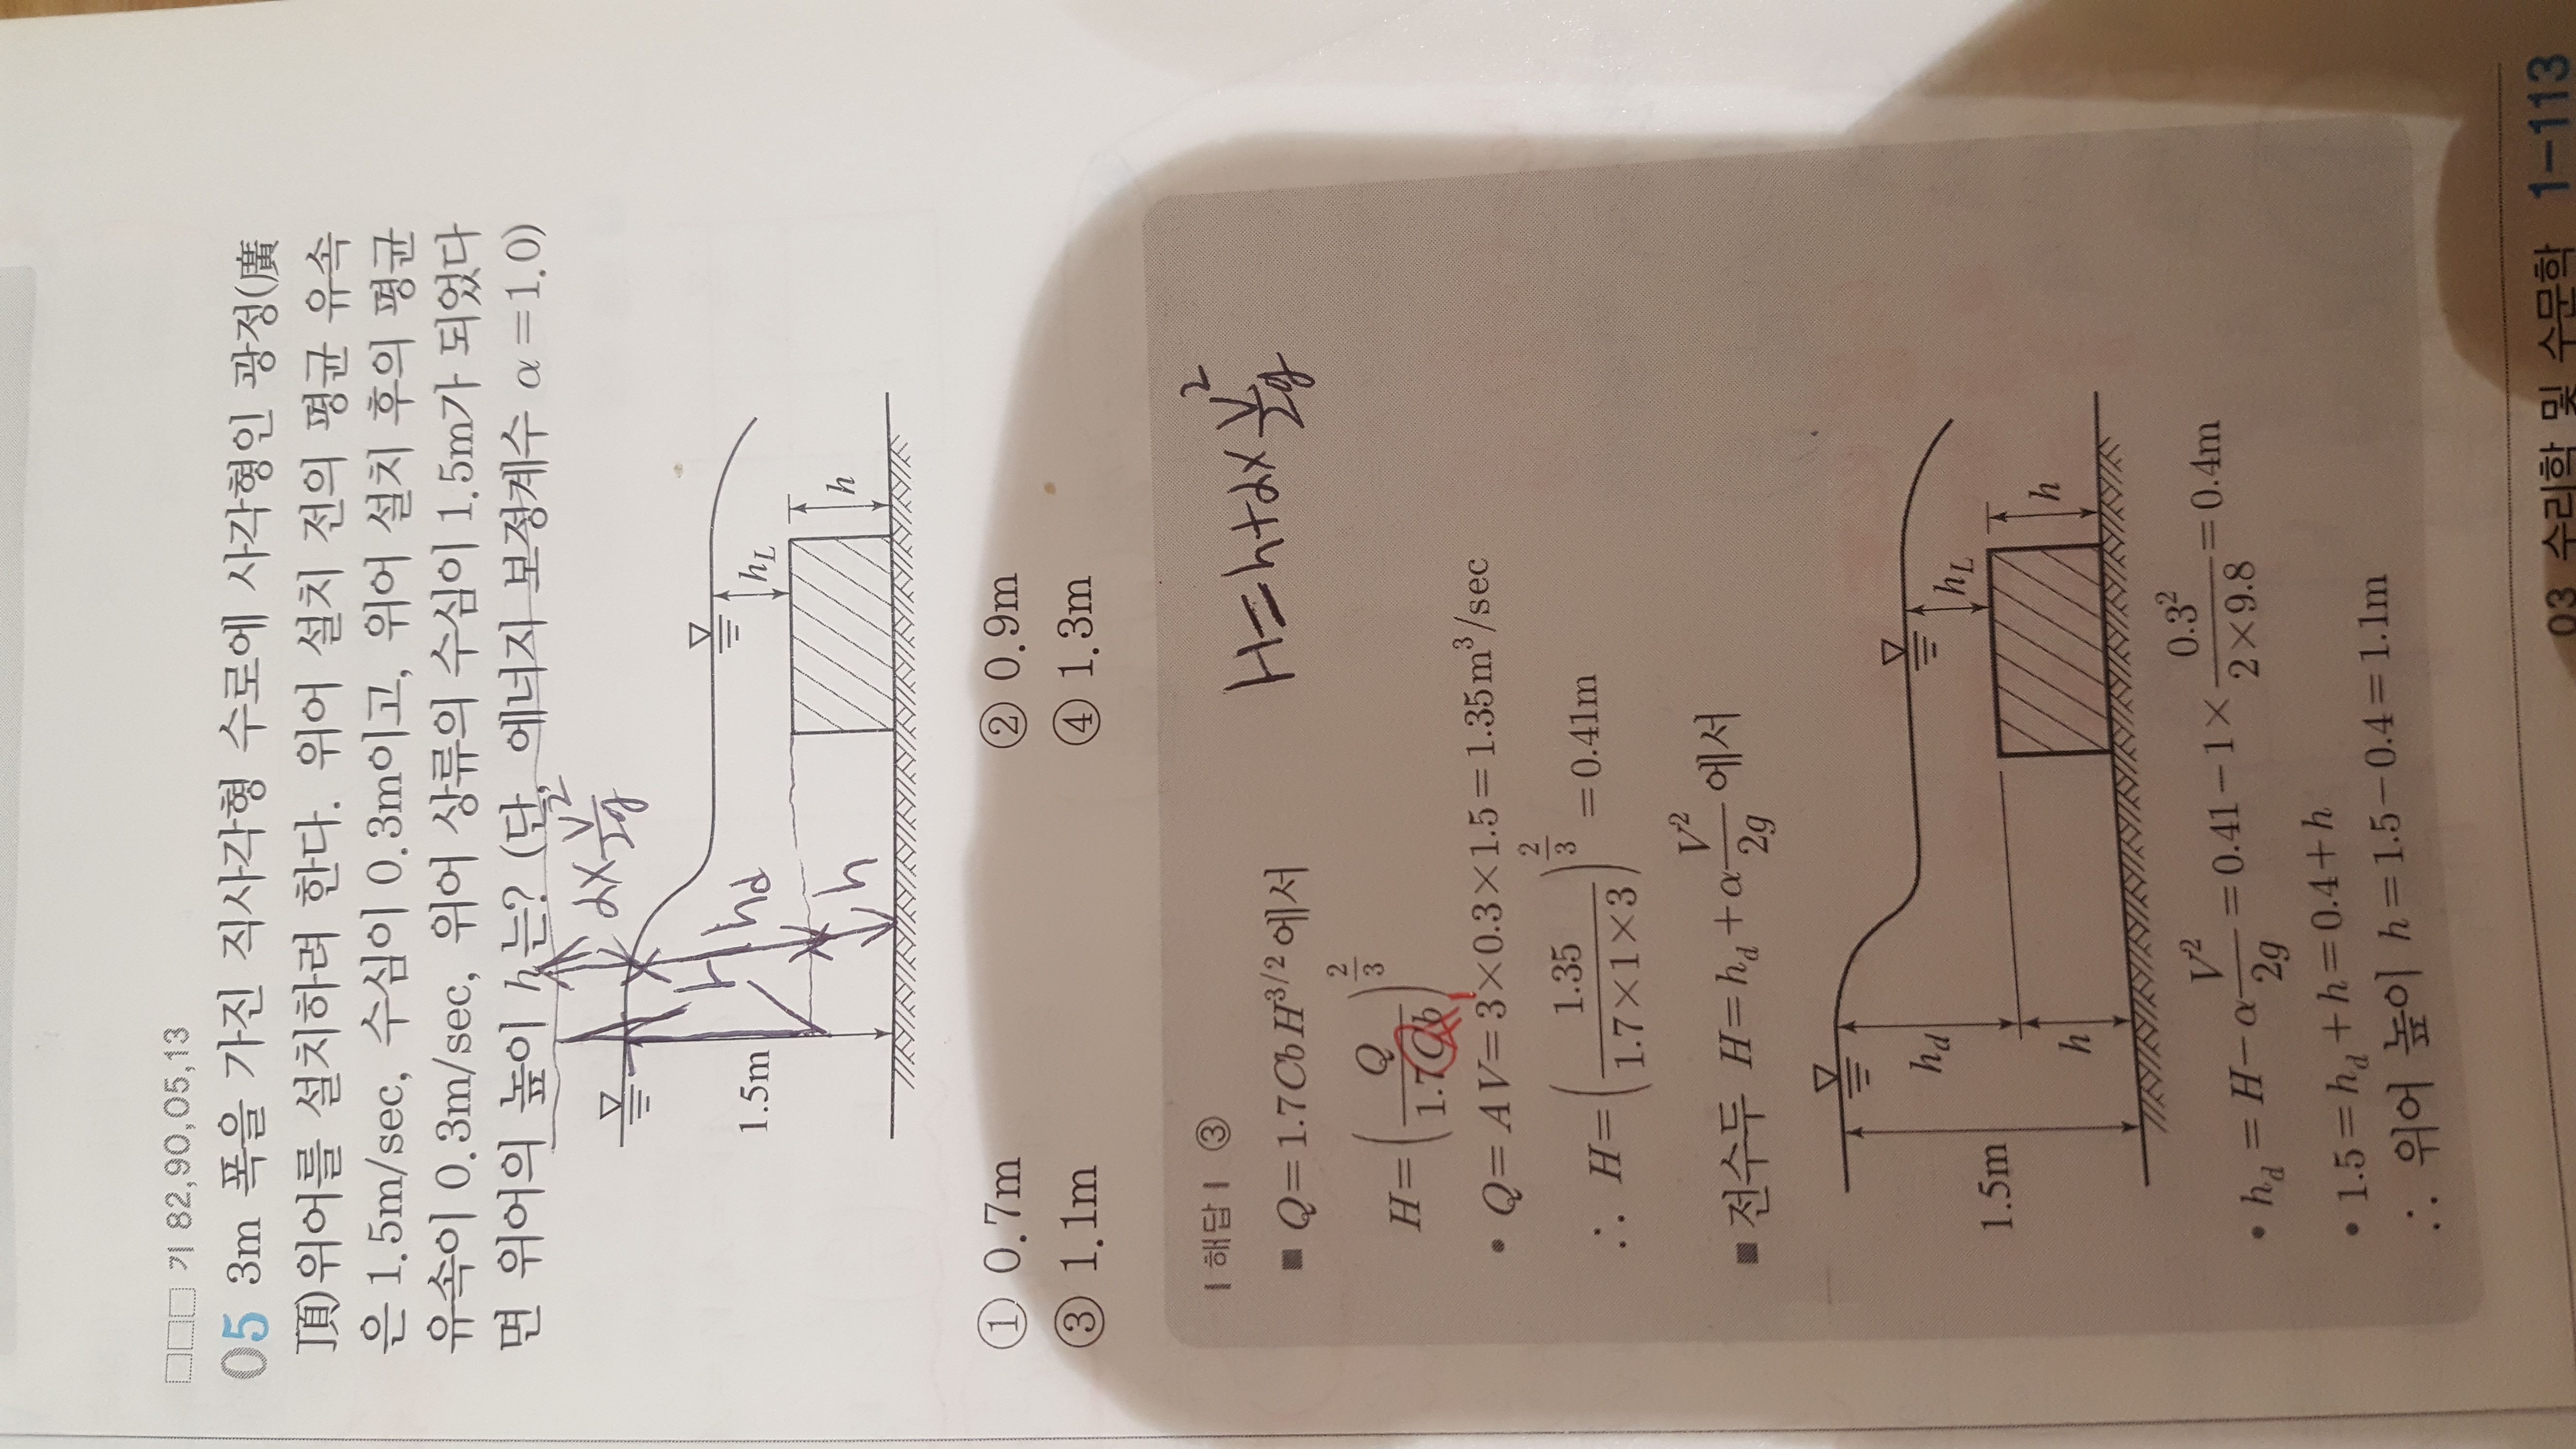 기 82,90,05,13
05 3m 폭을 가진 직사각형 수로에 사각형인 광정(廣
頂)위어를 설치하려 한다. 위어 설치 전의 평균 유속
은 1.5m/sec, 수심이 0.3m이고, 위어 설치 후의 평균
유속이 0.3m/sec, 위어 상류의 수심이 1.5m가 되었다
면 위어의 높이 h는? (단, 에너지 보정계수 α=1.0)
α×V²/2g
H
hd
h
1.5m
hL
h
① 0.7m ② 0.9m
③ 1.1m ④ 1.3m
| 해답 | ③
H=h+α×V²/2g
■ Q=1.7CbH^{3/2}에서
H=(Q/1.7Cb)^{2/3}
• Q=AV=3×0.3×1.5=1.35m³/sec
∴ H=(1.35/1.7×1×3)^{2/3}=0.41m
■ 전수두 H=h_d+αV²/2g에서
1.5m
h_d
h
h_L
h
• h_d=H-αV²/2g=0.41-1×0.3²/2×9.8=0.4m
• 1.5=h_d+h=0.4+h
∴ 위어 높이 h=1.5-0.4=1.1m
03 수리학 및 수문학 1-113